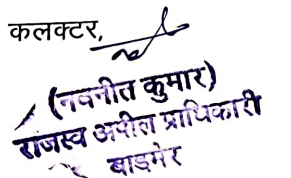 कलक्टर,
(नवनीत कुमार)
राजस्व अपील प्राधिकारी
बाडमेर